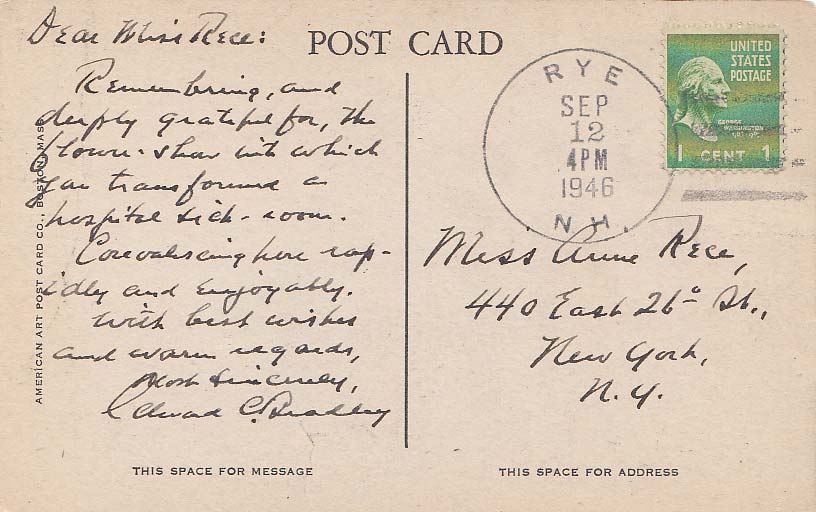 Dear Miss Rece:
Remembering, and
deeply grateful for, the
flower-show with which
you transformed a
hospital sick-room.
Convalescing here rap-
idly and enjoyably.
With best wishes
and warm regards,
Most Sincerely,
Edward C. Bradley
AMERICAN ART POST CARD CO., BOSTON, MASS.
THIS SPACE FOR MESSAGE
POST CARD
RYE
SEP
12
4PM
1946
N.H.
UNITED
STATES
POSTAGE
GEORGE
WASHINGTON
1 CENT 1
Miss Anne Rece,
440 East 26th St.,
New York,
N.Y.
THIS SPACE FOR ADDRESS